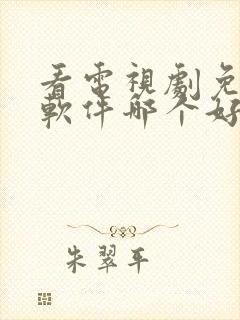 看電視劇免
軟件哪个好
朱翠平